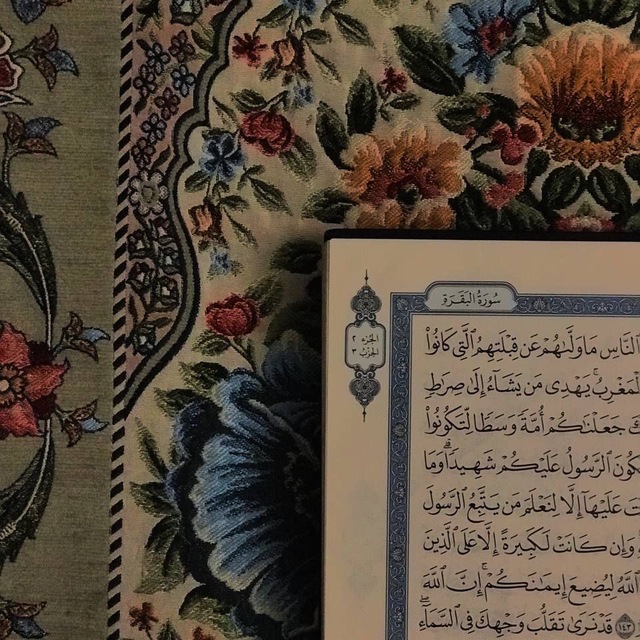 سُورَةُ البَقَرَةِ
الجزء ٢
الحزب ٣
ٱلنَّاسِ مَا وَلَّىٰهُمْ عَن قِبْلَتِهِمُ ٱلَّتِى كَانُوا۟
ٱلْمَغْرِبُ ۚ يَهْدِى مَن يَشَآءُ إِلَىٰ صِرَٰطٍ
جَعَلْنَٰكُمْ أُمَّةً وَسَطًا لِّتَكُونُوا۟
ٱلرَّسُولُ عَلَيْكُمْ شَهِيدًا ۗ وَمَا
عَلَيْهَآ إِلَّا لِنَعْلَمَ مَن يَتَّبِعُ ٱلرَّسُولَ
وَإِن كَانَتْ لَكَبِيرَةً إِلَّا عَلَى ٱلَّذِينَ
ٱللَّهُ لِيُضِيعَ إِيمَٰنَكُمْ ۚ إِنَّ ٱللَّهَ
١٤٣ قَدْ نَرَىٰ تَقَلُّبَ وَجْهِكَ فِى ٱلسَّمَآءِ ۖ